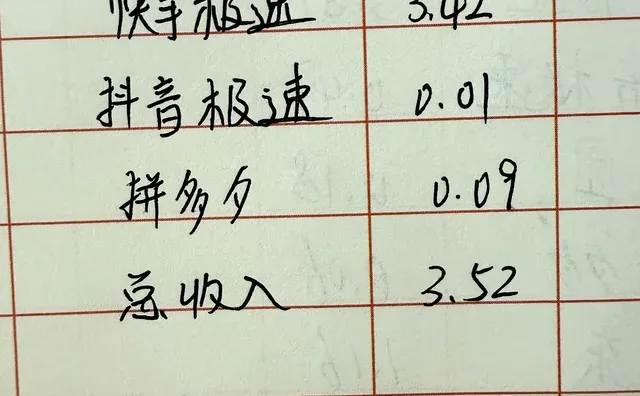 快手极速 3.42
抖音极速 0.01
拼多夕 0.09
总收入 3.52